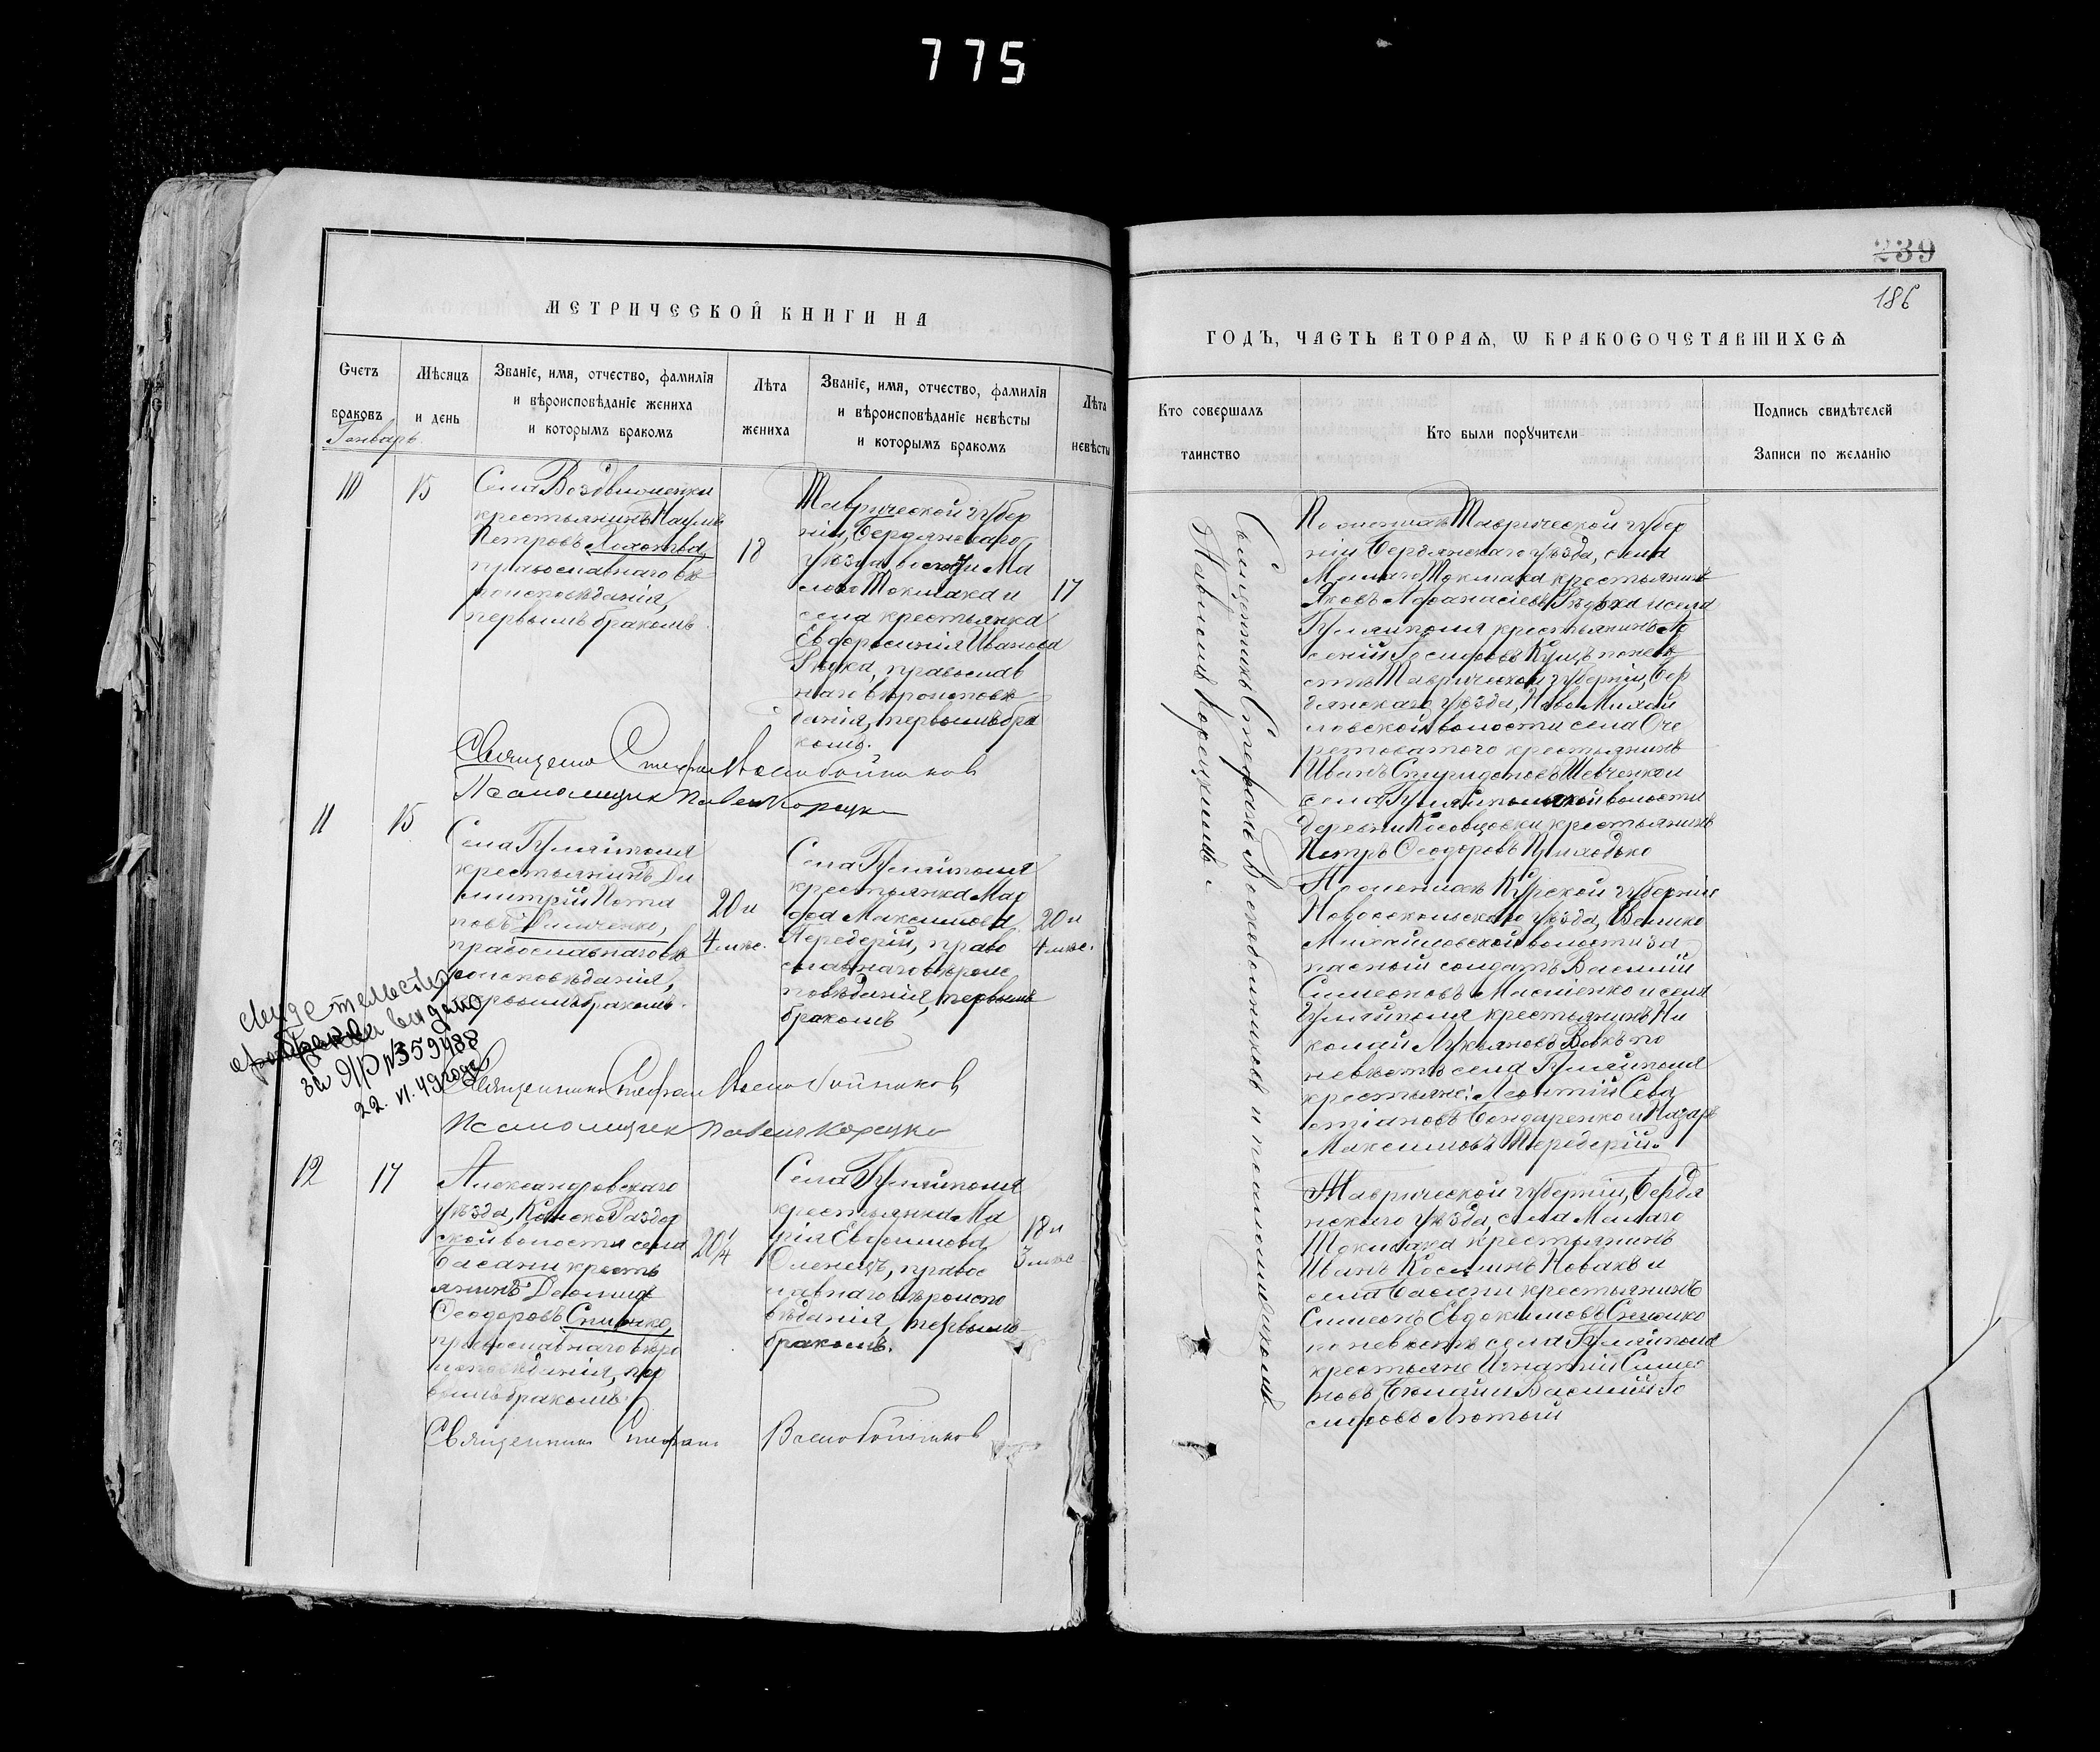 775
МЕТРИЧЕСКОЙ КНИГИ НА
Счетъ браковъ
Мѣсяцъ и день
Званіе, имя, отчество, фамилія
и вѣроисповѣданіе жениха
и которымъ бракомъ
Лѣта жениха
Званіе, имя, отчество, фамилія
и вѣроисповѣданіе невѣсты
и которымъ бракомъ
Лѣта невѣсты
Генварь
10
15
Села Воздвиженки
крестьянинъ Наумъ
Петровъ
православнаго вѣ
роисповѣданія,
первымъ бракомъ.
18
Таврической губер
ніи, Бердянскаго
уѣзда, волости Ма
лаго Токмака и
села крестьянка
Евфросинія Иванова
Рѣдка, православ
наго вѣроисповѣ
данія, первымъ бра
комъ.
17
Священник Стефан Воскобойников
Псаломщик Павел Корецкий
11
15
Села Гуляйполя
крестьянинъ Ди
митрій Пота
повъ
православнаго вѣ
роисповѣданія,
первымъ бракомъ.
20 и
4 мѣс.
Села Гуляйполя
крестьянка Мар
фа Максимова
Передерій, право
славнаго вѣроис
повѣданія, первымъ
бракомъ
20 и
4 мѣс.
свидетельство
о браке видано
за ЯР № 359488
22. VI. 49 года
Священник Стефан Воскобойников
Псаломщик Павел Корецкий
12
17
Александровскаго
уѣзда, Конско-Раздор
ской волости села
Басани кресть
янинъ
Ѳеодоровъ Спи
православнаго вѣро
исповѣданія, пер
вымъ бракомъ.
20 1/4
Села Гуляйполя
крестьянка Ма
рія Евфимова
Оленецъ, правос
лавнаго вѣроиспо
вѣданія, первымъ
бракомъ.
18 и
3 мѣс
Священник Стефан Воскобойников
239
186
ГОДЪ, ЧАСТЬ ВТОРАЯ, Ѡ БРАКОСОЧЕТАВШИХСЯ
Кто совершалъ таинство
Кто были порꙋчители
Подпись свидѣтелей
Записи по желанію
Священникъ Стефанъ Воскобойниковъ и псаломщикомъ
Павломъ Корецкимъ.
По женихѣ Таврической губер
ніи Бердянскаго уѣзда, села
Малаго Токмака крестьянинъ
Яковъ Афанасіевъ Рѣдька и села
Гуляйполя крестьянинъ Ар
сеній Іосифовъ Куцъ по невѣ
стѣ Таврической губерніи, Бер
дянскаго уѣзда, Ново-Михай
ловской волости села Оче
ретоватого крестьянинъ
Иванъ Спиридоновъ Шевченко и
села Гуляйпольской волости
деревни крестьянинъ
Петръ Ѳеодоровъ Приходько
По женихѣ Курской губерніи
Новооскольскаго уѣзда, Велико
Михайловской волости за
пасный солдатъ Василій
Симеоновъ и села
Гуляйполя крестьянинъ Ни
колай Лукьяновъ Вовкъ по
невѣстѣ села Гуляйполя
крестьяне: Леонтій Сева
стіановъ Бондаренко и Назаръ
Максимовъ Передерій.
Таврической губерніи, Бердя
нскаго уѣзда, села Малаго
Токмака крестьянинъ
Иванъ Косминъ Новакъ и
села Басани крестьянинъ
Симеонъ Евдокимовъ
по невѣстѣ села Гуляйполя
крестьяне Игнатій Симео
новъ и Василій Іо
сифовъ Лютый